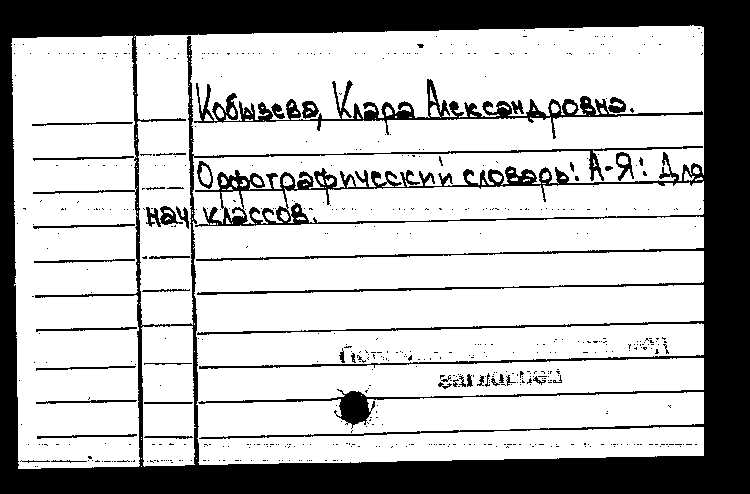 Кобызева, Клара Александровна.
Орфографический словарь: А-Я: Для
нач. классов.
под
заглавием